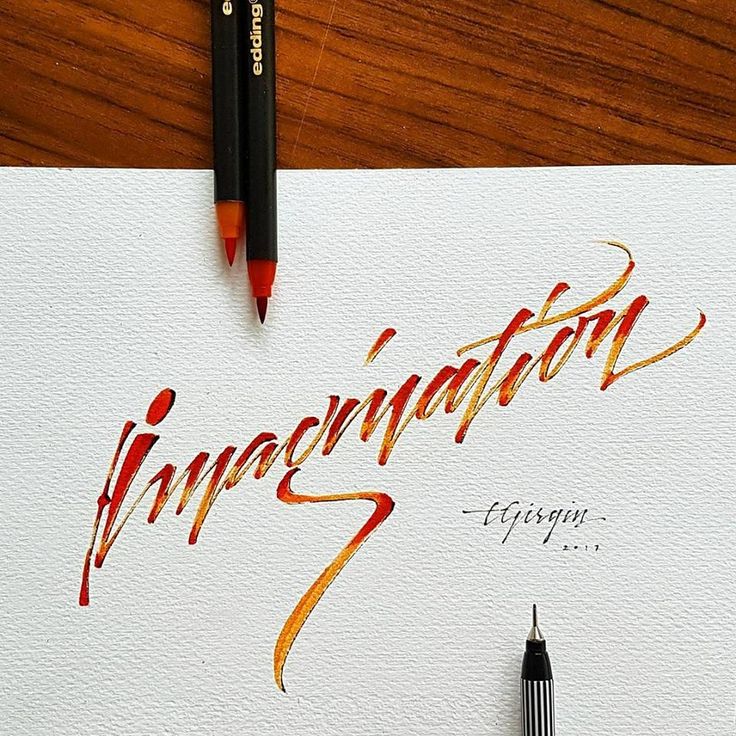 edding
Imagination
TGirgin
2017